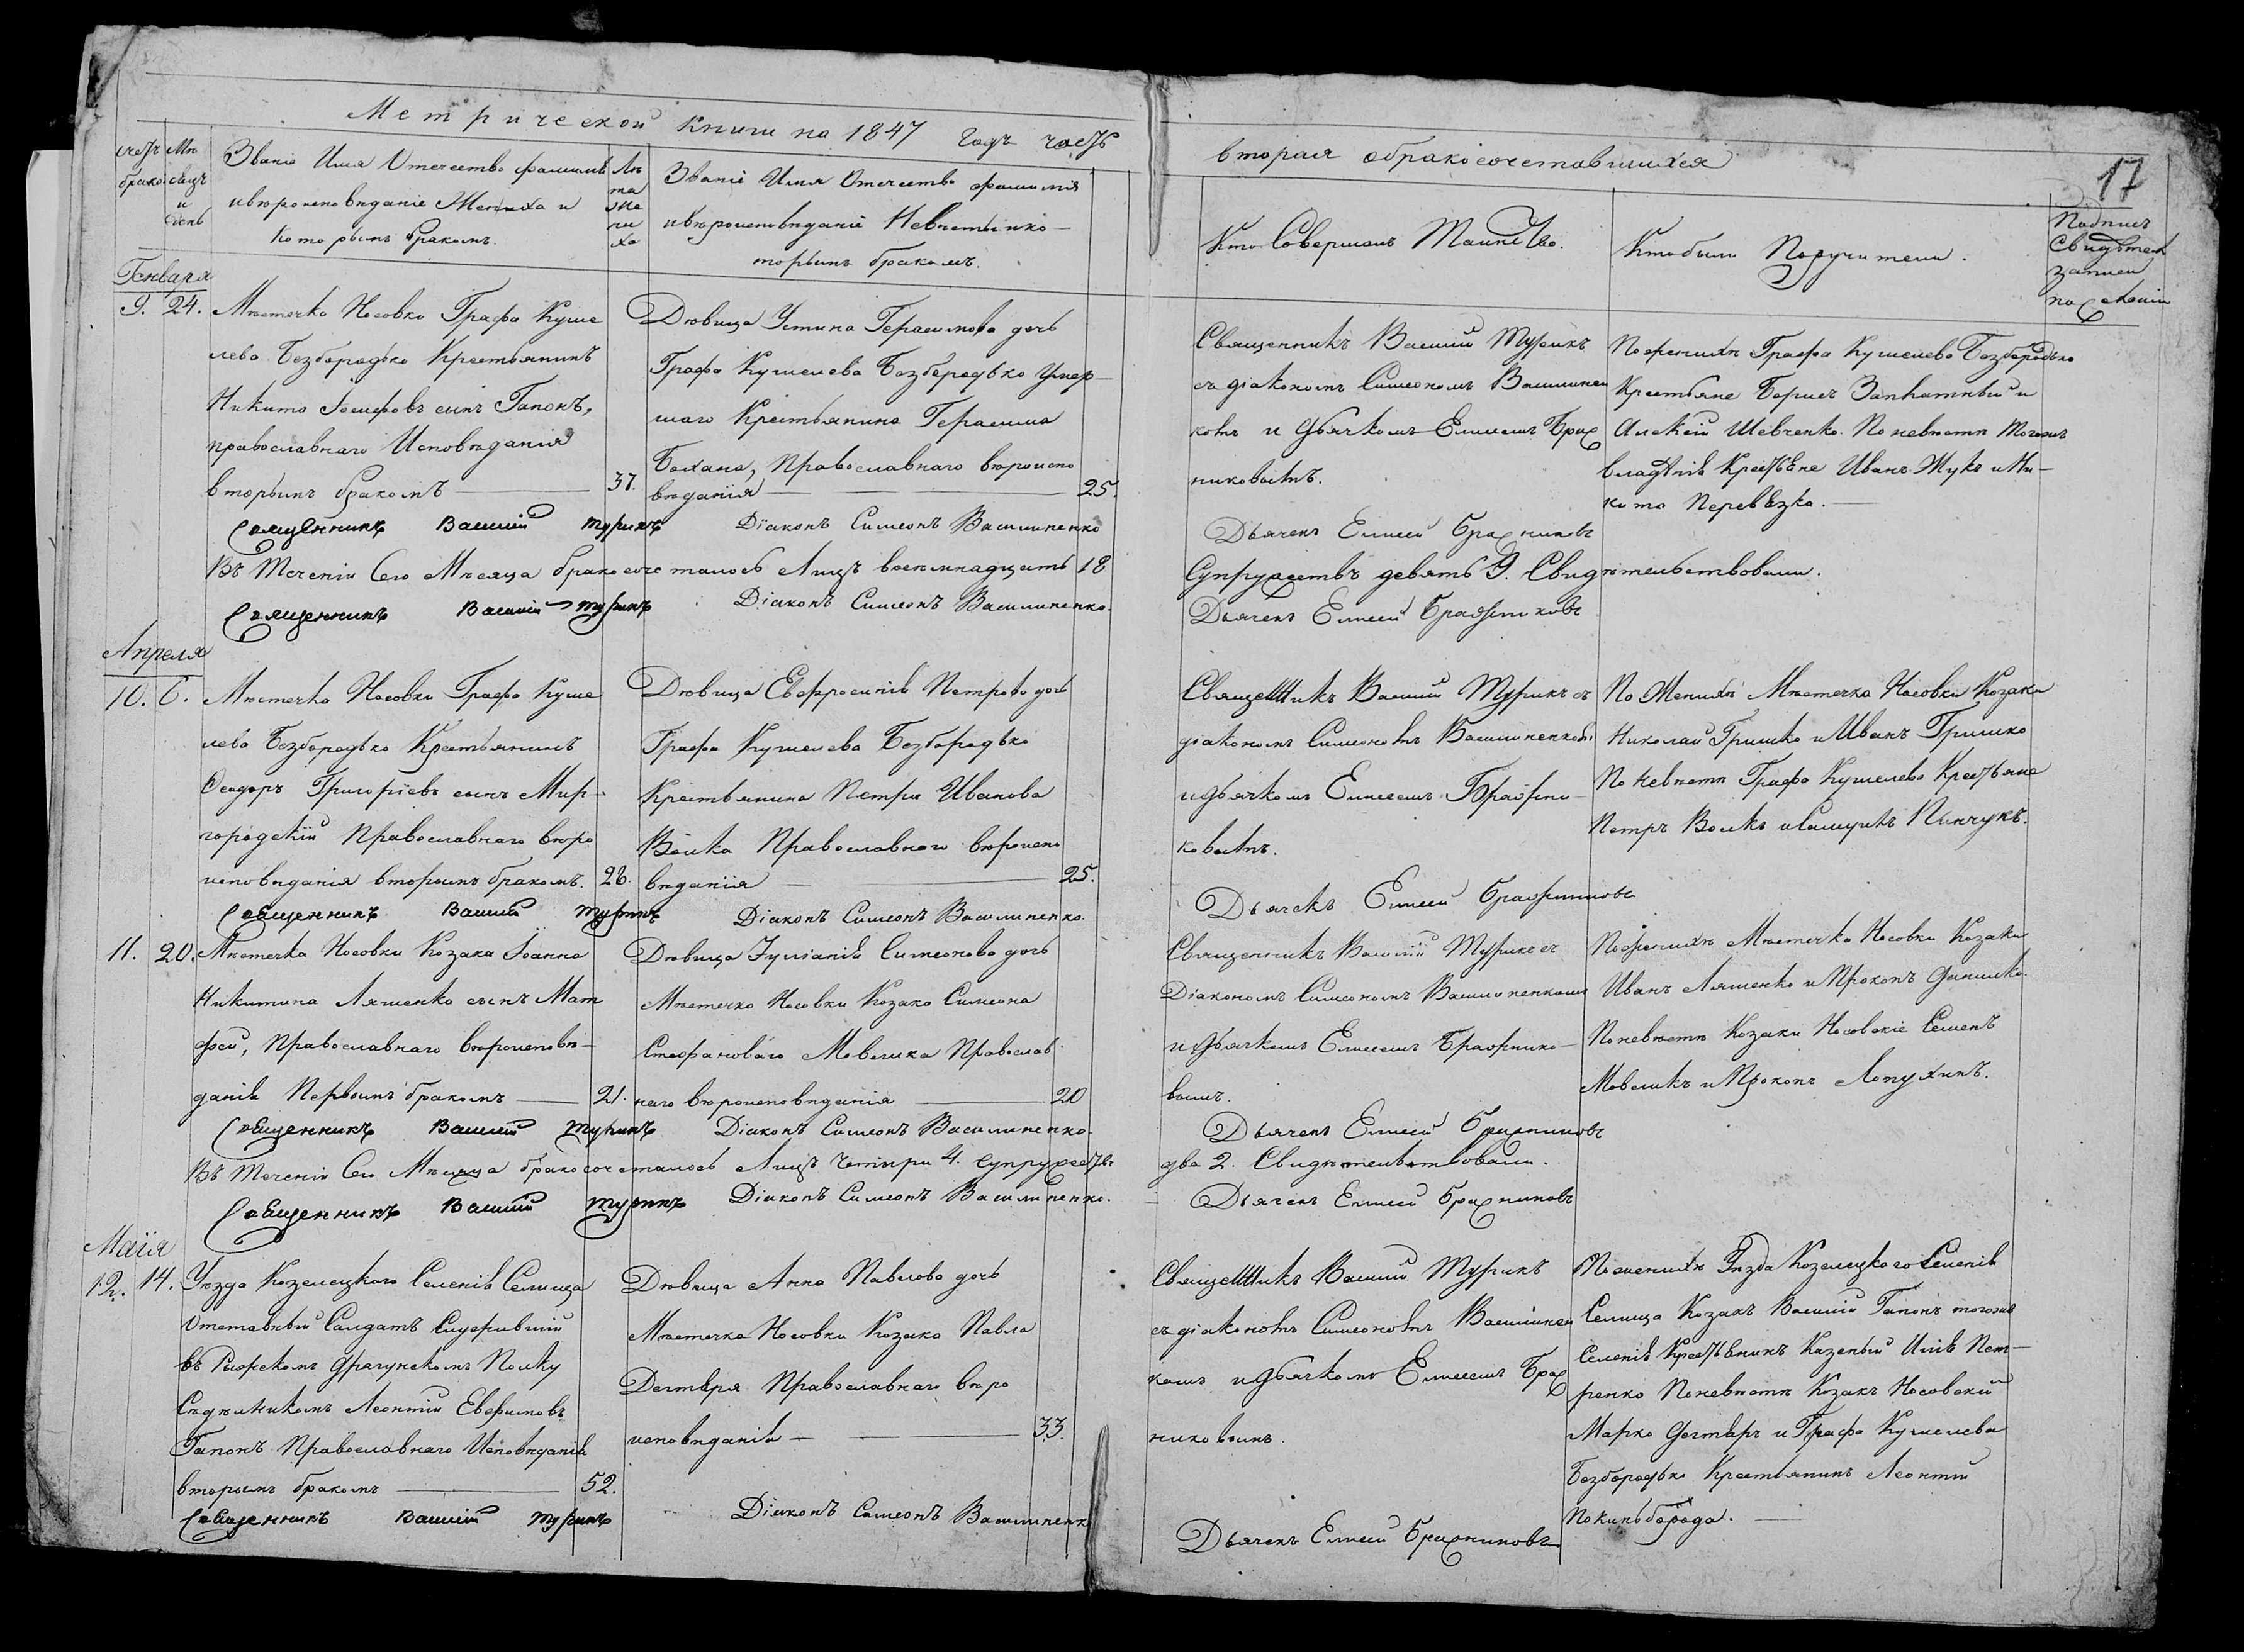 Метрической книги на 1847 годъ часть
вторая обракосочетавшихся
17
счетъ брако
Мѣ
сяцъ
и
день
Званіе Имя Отечество фамилія
ивѣроисповѣданіе Жениха и
которымъ бракомъ.
Лѣ
та
же
ни
ха
Званіе Имя Отечество фамилія
ивѣроисповѣданіе Невѣсты ико-
торымъ бракомъ.
Кто Совершалъ Таинство.
Ктобыли Поручители.
Подпись
Свидѣтел
записи
Генваря
9. 24. Мѣстечка Носовки Графа Куше
лева Безбородько Крестьянинъ
Никита Іосифовъ сынъ Гапонъ,
православнаго Исповѣданія
вторымъ бракомъ 37.
Дѣвица Устина Герасимова дочь
Графа Кушелева Безбородько умер-
шаго Крестьянина Герасима
Бохана, Православнаго вѣроиспо
вѣданія 25.
Священникъ Василій Турикъ Діаконъ Симеонъ Василиненко
Священникъ Василій Турикъ
съ діакономъ Симеономъ Василинен
комъ и дьячкомъ Елисеемъ Браж
никовымъ.
Дьячекъ Елисей Бражниковъ
Пожениху Графа Кушелева Безбородько
Крестьяне Борисъ Запкатный и
Алексій Шевченко. По невѣсти тогожъ
владѣнія Крестьяне Иванъ Жукъ и Ни-
кита Перевѣзка.
Въ Теченіи Сего Мѣсяца бракосочеталось Лицъ восемнадцать 18
Супружествъ девять 9. Свидѣтельствовали.
Священникъ Василій Турикъ Діаконъ Симеонъ Василиненко.
Дьячекъ Елисей Бражниковъ
Апреля
10. 6. Мѣстечка Носовки Графа Куше
лева Безбородько Крестьянинъ
Феодоръ Григоріевъ сынъ Мир-
городскій Православнаго вѣро
исповѣданія вторымъ бракомъ. 26.
Дѣвица Евфросинія Петрова дочь
Графа Кушелева Безбородько
Крестьянина Петра Иванова
Волка Православнаго вѣроиспо
вѣданія 25.
Священникъ Василій Турикъ Діаконъ Симеонъ Василиненко.
Священникъ Василій Турикъ съ
діакономъ Симеономъ Василиненкомъ
идьячкомъ Елисеемъ Бражни-
ковымъ.
Дьячекъ Елисей Бражниковъ
По Жениху Мѣстечка Носовки Козаки
Николай Гришко и Иванъ Гришко
По Невѣсти Графа Кушелева Крестьяне
Петръ Волкъ иСамуилъ Пинчукъ.
11. 20. Мѣстечка Носовки Козака Іоанна
Никитина Ляшенко сынъ Мат
фей, Православнаго вѣроисповѣ-
данія Первымъ бракомъ 21.
Дѣвица Іуліанія Симеонова дочь
Мѣстечка Носовки Козака Симеона
Стефановаго Мовлика Православ
наго вѣроисповѣданія 20
Священникъ Василій Турикъ Діаконъ Симеонъ Василиненко.
Священникъ Василій Турикъ съ
Діакономъ Симеономъ Василиненкомъ
идьячкомъ Елисеемъ Бражнико-
вымъ.
Дьячекъ Елисей Бражниковъ
Пожениху Мѣстечка Носовки Козаки
Иванъ Ляшенко и Прокопъ Данилко.
Поневѣсти Козаки Носовскіе Семенъ
Мовликъ и Прокопъ Лопухинъ.
Въ Теченіи Сего Мѣсяца бракосочеталось Лицъ четыри 4. Супружествъ
два 2. Свидѣтельствовали.
Священникъ Василій Турикъ Діаконъ Симеонъ Василиненко.
Дьячекъ Елисей Бражниковъ
Маія
12. 14. Уѣзда Козелецкого Селенія Селища
Отставный Салдатъ Служившій
въ Рыжскомъ драгунскомъ Полку
Сѣдѣлникомъ Леонтій Евфимовъ
Гапонъ Православнаго Исповѣданія
вторымъ бракомъ 52.
Дѣвица Анна Павлова дочь
Мѣстечка Носовки Козака Павла
Дегтяря Православнаго вѣро
исповѣданія 33.
Священникъ Василій Турикъ Діаконъ Симеонъ Василиненко
Священникъ Василій Турикъ
съ діакономъ Симеономъ Василинен
комъ идьячкомъ Елисеемъ Браж
никовымъ.
Дьячекъ Елисей Бражниковъ
Пожениху Уѣзда Козелецкого Селенія
Селища Козакъ Василій Гапонъ тогожъ
Селенія Крестьянинъ Казеный Илія Пет-
ренко Поневѣсти Козакъ Носовскій
Марко Дегтяръ и Графа Кушелева
Безбородько Крестьянинъ Леонтій
Покиньборода.